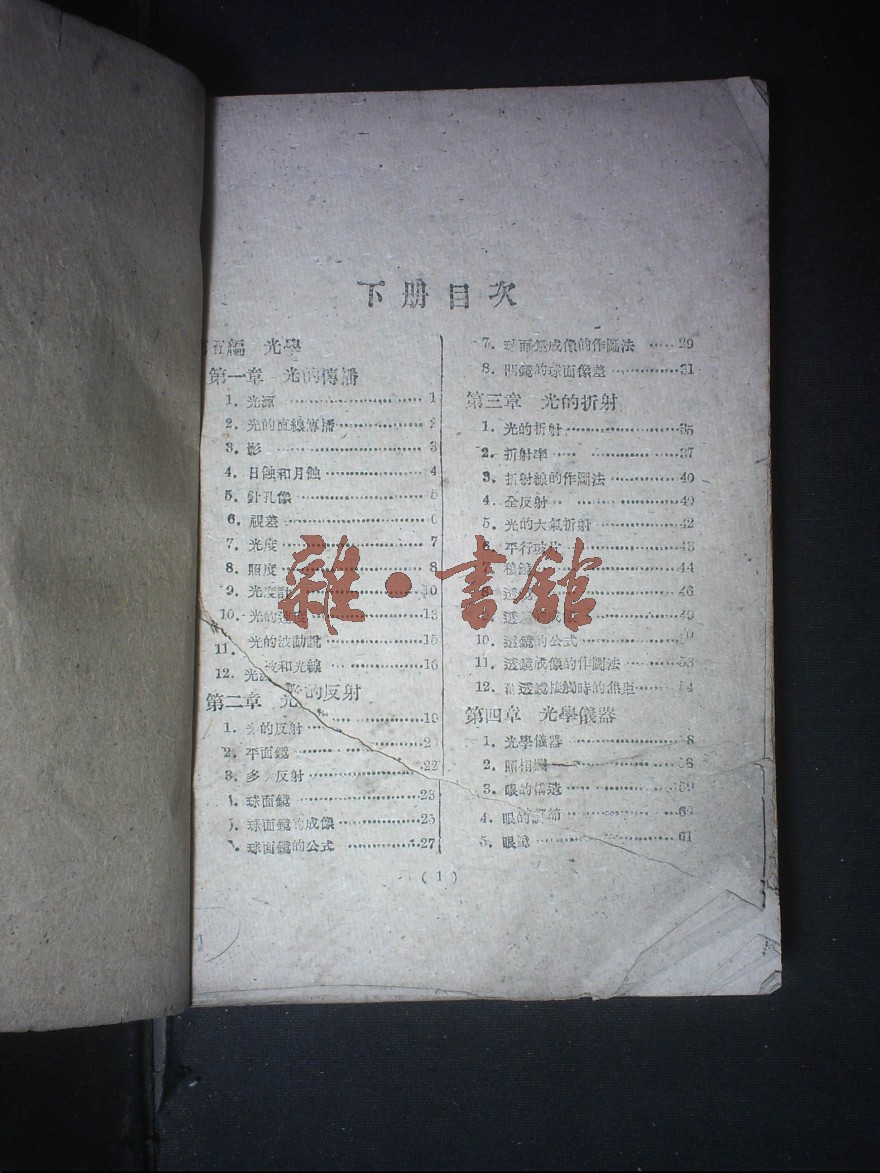 下册目次
五編 光學
第一章 光的傳播
1. 光源 1
2. 光的直線傳播 2
3. 影 3
4. 日蝕和月蝕 4
5. 針孔像 5
6. 視差 6
7. 光度 7
8. 照度 8
9. 光度 10
10. 光的速度 13
11. 光的波動說 15
12. 光 波和光線 16
第二章 光的反射
1. 的反射 19
2. 平面鏡 21
3. 多 反射 22
球面鏡 23
球面鏡的成像 25
球面鏡的公式 27
(1)
7. 球面鏡成像的作圖法 29
8. 凹鏡的球面像差 31
第三章 光的折射
1. 光的折射 35
2. 折射率 37
3. 折射線的作圖法 40
4. 全反射 40
5. 光的大氣折射 42
6. 平行玻片 43
7. 稜鏡 44
8. 透 46
9. 透 的成 49
10. 透鏡的公式
11. 透鏡成像的作圖法 53
12. 透鏡接觸時的焦距
第四章 光學儀器
1. 光學儀器 8
2. 照相 58
3. 眼的構造 59
4. 眼的調節 60
5. 眼鏡 61
雜·書館